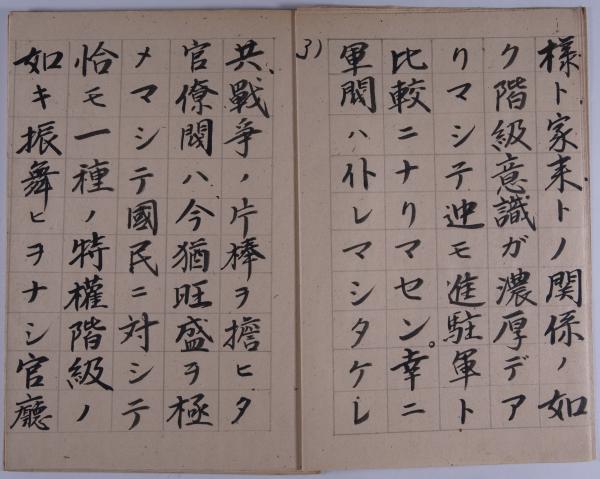 様ト家来トノ関係ノ如
ク階級意識ガ濃厚デア
リマシテ迚モ進駐軍ト
比較ニナリマセン。幸ニ
軍閥ハ仆レマシタケレ
3)
共戰爭ノ片棒ヲ擔ヒタ
官僚閥ハ今猶旺盛ヲ極
メマシテ國民ニ対シテ
恰モ一種ノ特權階級ノ
如キ振舞ヒヲナシ官廳